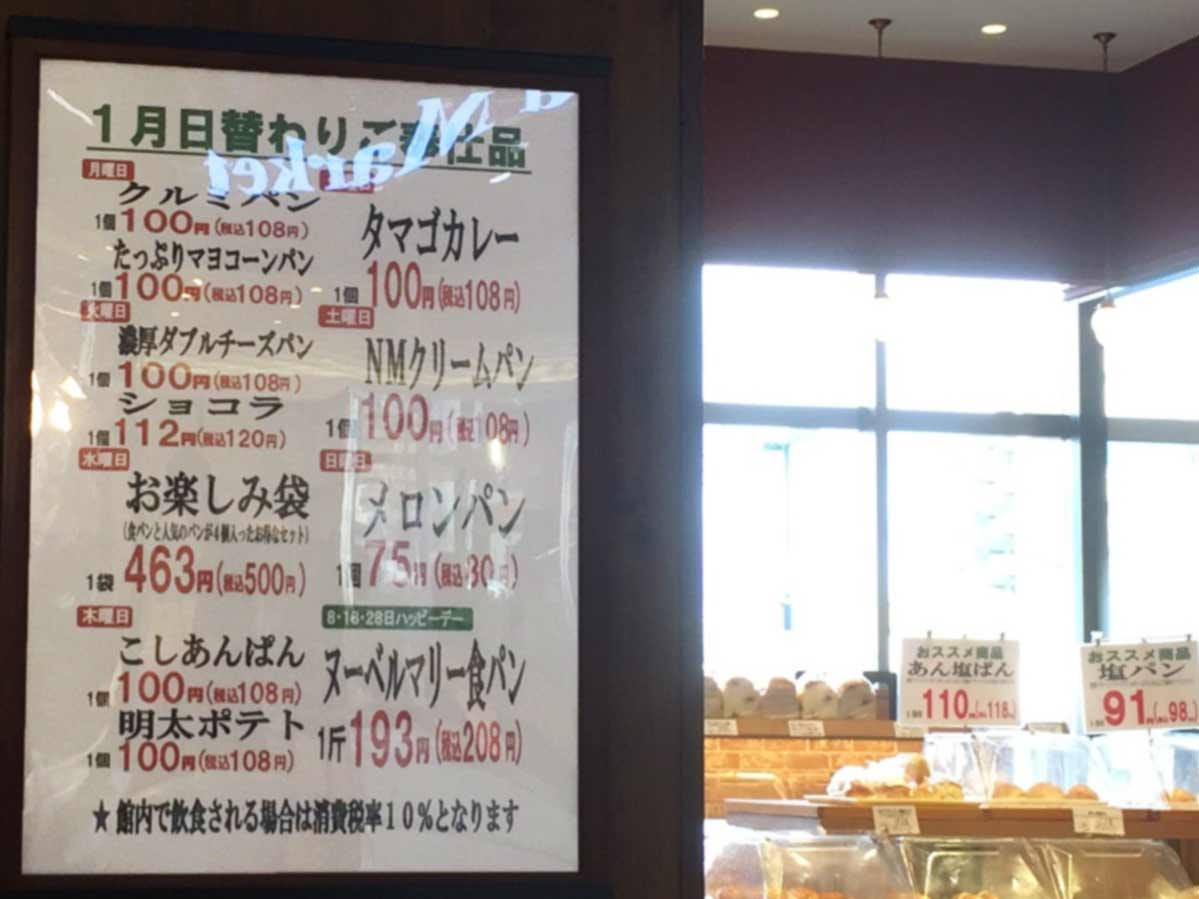 1月日替わりご奉仕品
Market
月曜日
クルミパン
1個100円(税込108円)
たっぷりマヨコーンパン
1個100円(税込108円)
火曜日
濃厚ダブルチーズパン
1個100円(税込108円)
ショコラ
1個112円(税込120円)
水曜日
お楽しみ袋
(食パンと人気のパンが4個入ったお得なセット)
1袋463円(税込500円)
木曜日
こしあんぱん
1個100円(税込108円)
明太ポテト
1個100円(税込108円)
タマゴカレー
1個100円(税込108円)
土曜日
NMクリームパン
1個100円(税込108円)
日曜日
メロンパン
1個75円(税込80円)
8・16・28日ハッピーデー
ヌーベルマリー食パン
1斤193円(税込208円)
★館内で飲食される場合は消費税率10%となります
おススメ商品
あん塩ぱん
1個110円(税込118円)
おススメ商品
塩パン
1個91円(税込98円)